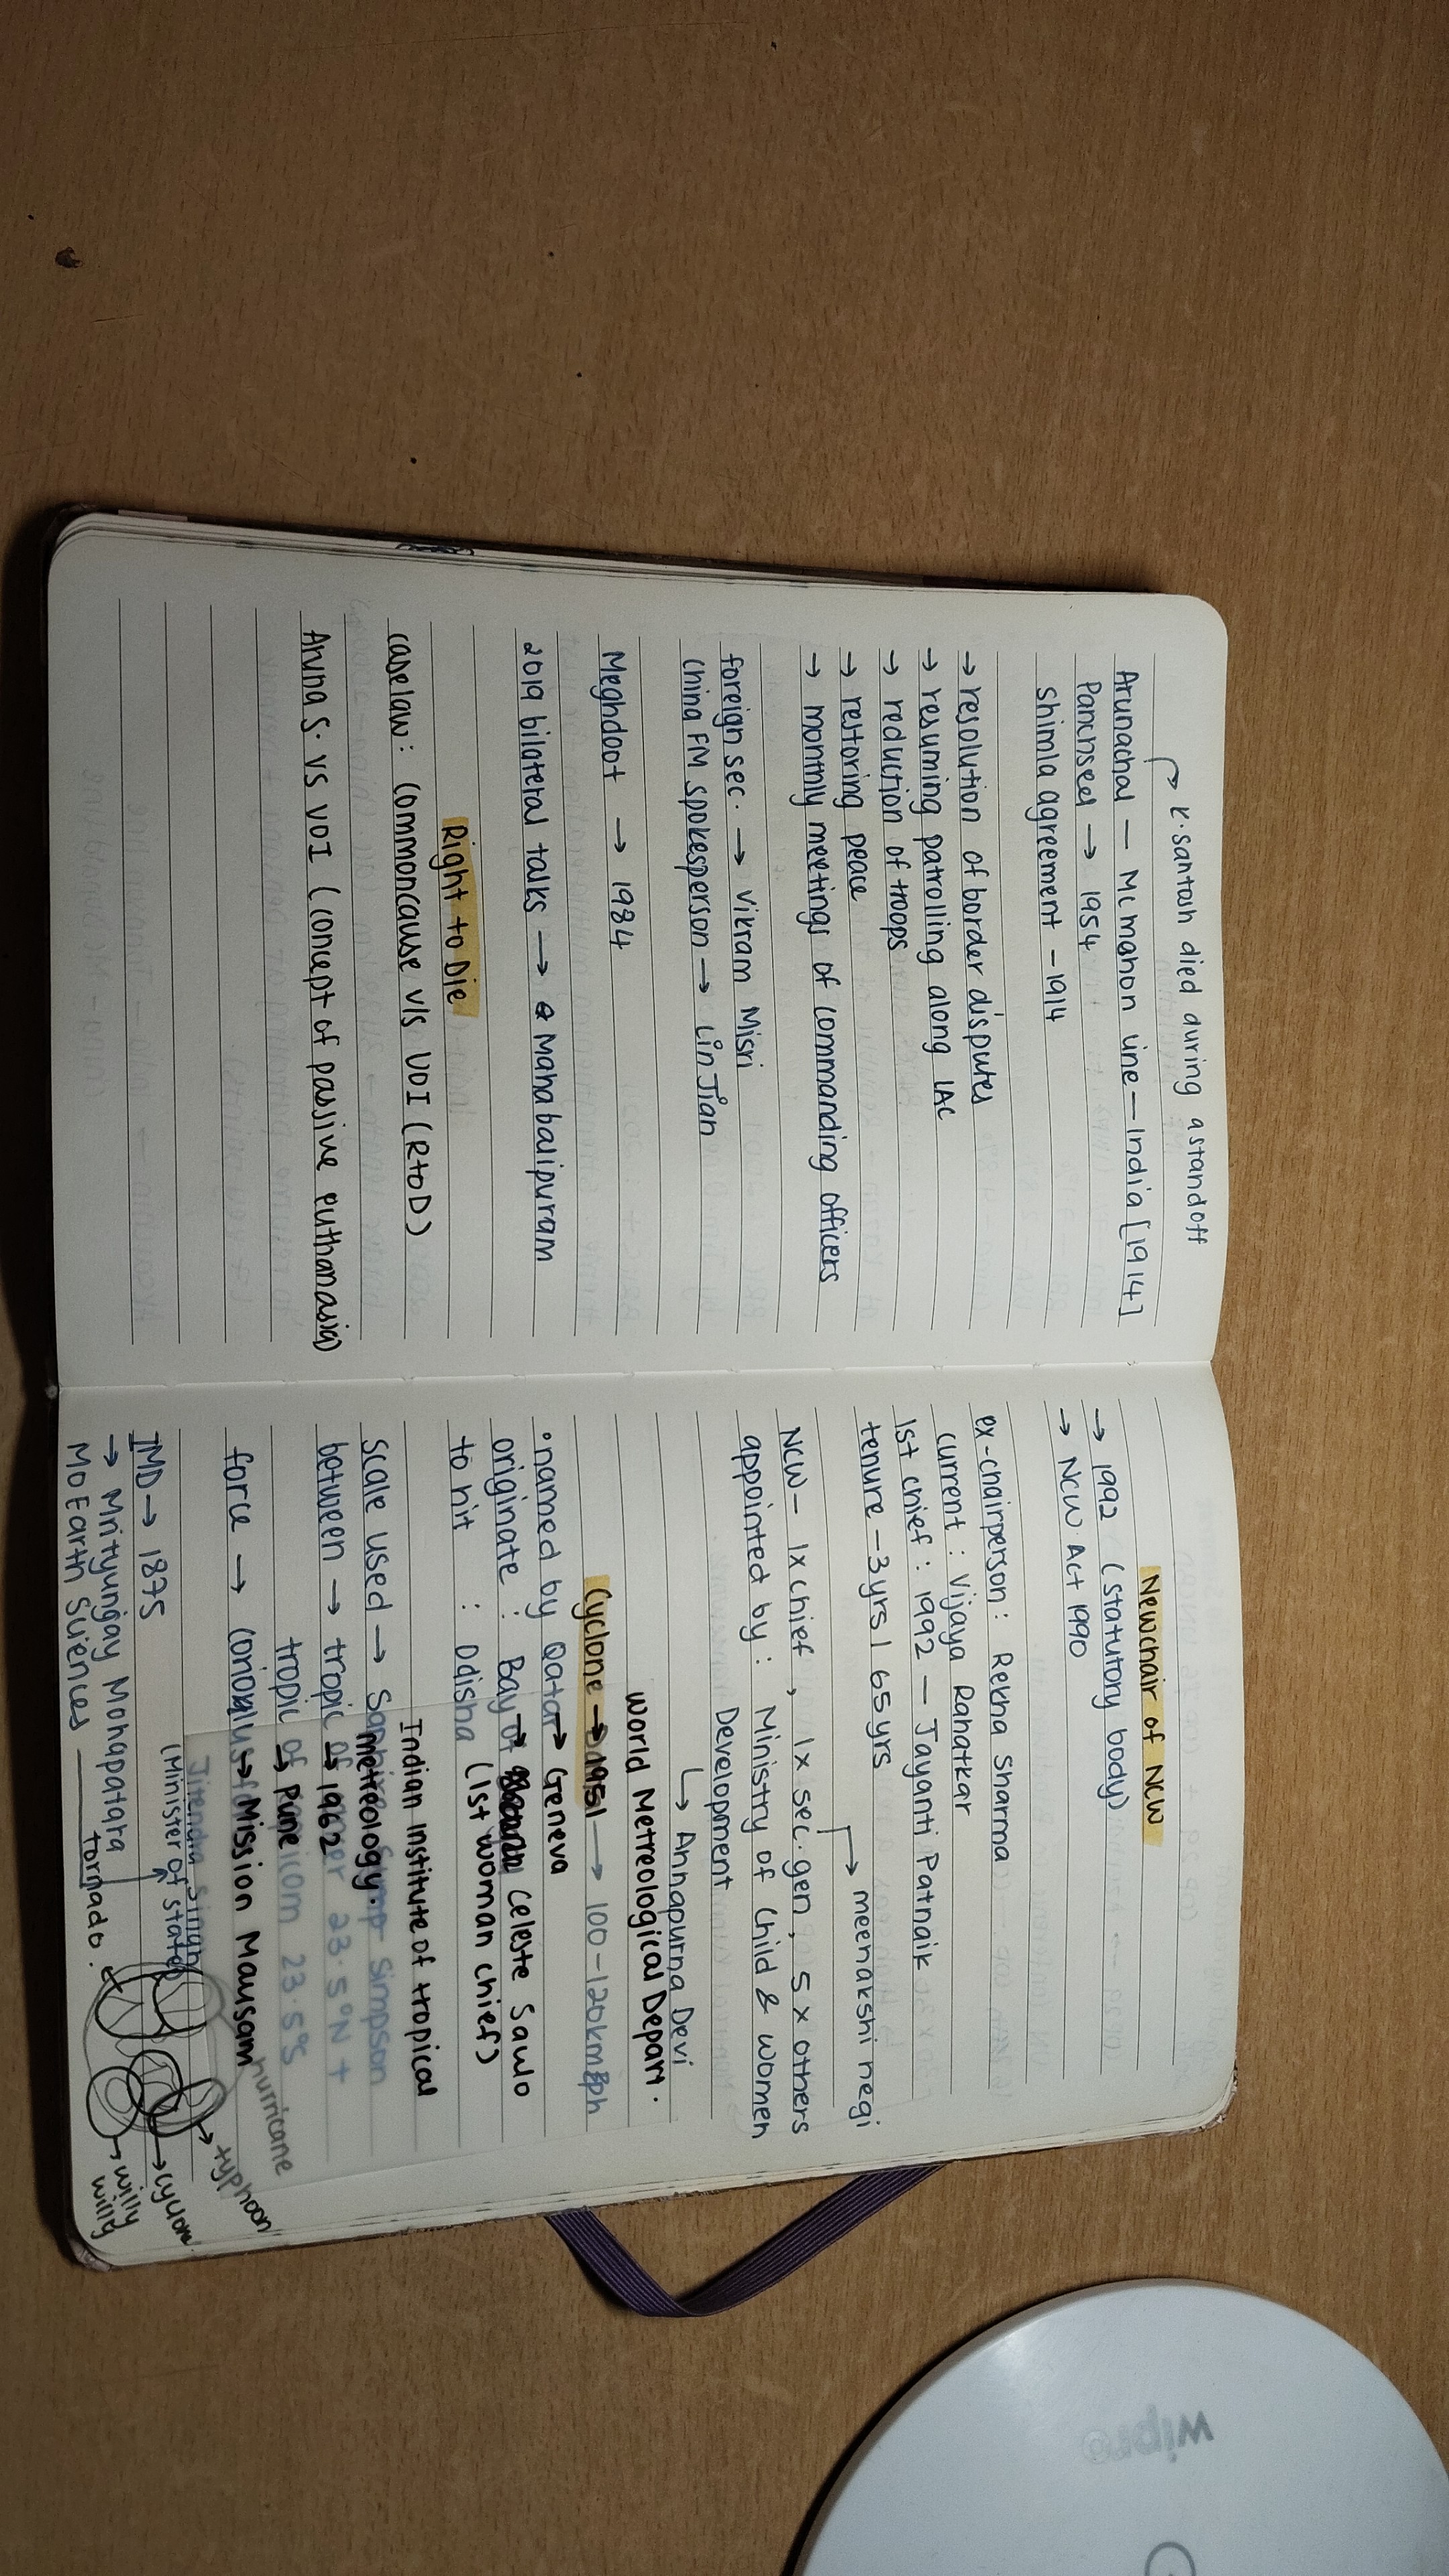 K. Santosh died during a standoff
Arunachal — Mcmahon line — India [1914]
Panchseel → 1954
Shimla agreement - 1914
→ resolution of border disputes
→ resuming patrolling along LAC
→ reduction of troops
→ restoring peace
→ monthly meetings of commanding officers
foreign sec. → Vikram Misri
China FM spokesperson → Lin Jian
Meghdoot → 1984
2019 bilateral talks → Mahabalipuram
Right to Die
caselaw: (commoncause v/s UOI (RtoD)
Aruna S. vs UOI (concept of passive euthanasia)
New chair of NCW
→ 1992 (statutory body)
→ NCW Act 1990
ex-chairperson: Rekha Sharma
current : Vijaya Rahatkar
1st chief : 1992 — Jayanti Patnaik
tenure - 3yrs | 65 yrs
meenakshi negi
NCW - 1x chief, 1x sec. gen, 5x others
appointed by : Ministry of Child & Women
Development
Annapurna Devi
World Metreological Depart.
Cyclone → 1951 → 100-120kmph
named by Qatar → Geneva
originate : Bay of → Celeste Sawlo
to hit : Odisha (1st woman chief)
Indian Institute of tropical
metreology.
Scale used → Simpson
between → tropic of 23.5°N +
→ 1962
tropic of 23.5°S
→ Pune
force → → Mission Mausam
IMD → 1875
(Minister of state)
→ Mrityunjay Mohapatara
MoEarth Sciences
tornado.
hurricane
typhoon
cyclone
willy
willy
wipro